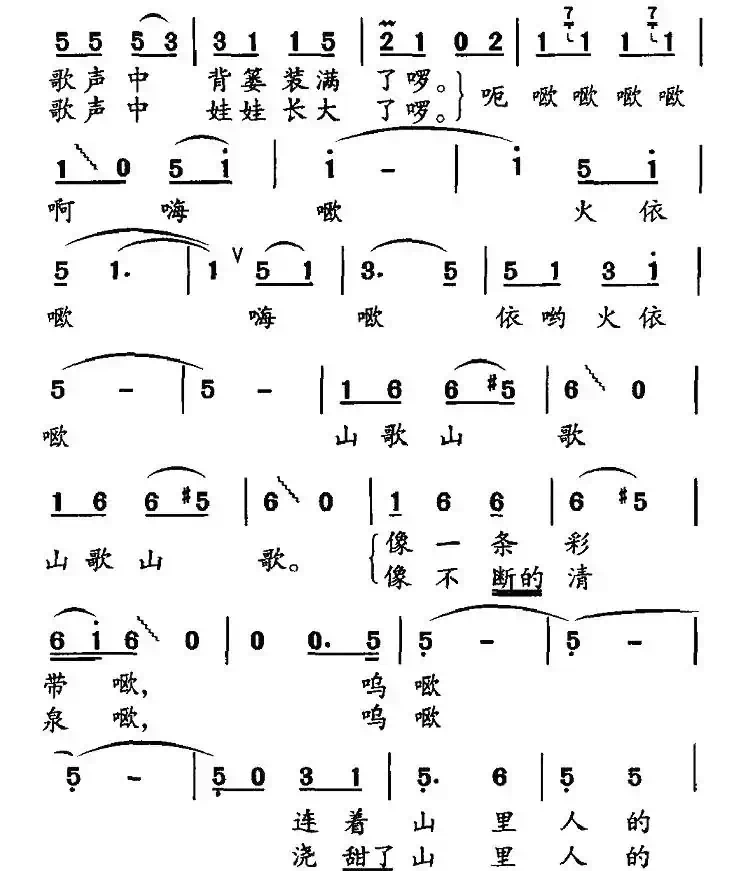 5 5 5 3 | 3 1 1 5 | 2 1 0 2 | 1 7 1 1 7 1 |
歌声中 背篓装满 了啰。 呃 噷噷噷噷
歌声中 娃娃长大 了啰。
1 0 5 i | i - | i 5 i |
啊 嗨 噷 火依
5 1. | 1 ∨ 5 1 | 3. 5 | 5 1 3 i |
噷 嗨 噷 依哟火依
5 - | 5 - | 1 6 6 #5 | 6 0 |
噷 山歌山 歌
1 6 6 #5 | 6 0 | 1 6 6 | 6 #5 |
山歌山 歌。 像一条彩
像不断的清
6 i 6 0 | 0 0. 5 | 5 - | 5 - |
带噷, 呜噷
泉噷, 呜噷
5 - | 5 0 3 1 | 5. 6 | 5 5 |
连着山里人的
浇甜了山里人的